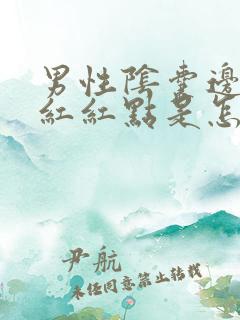 男性陰囊邊
紅紅點是怎
尹航
未经同意禁止转载